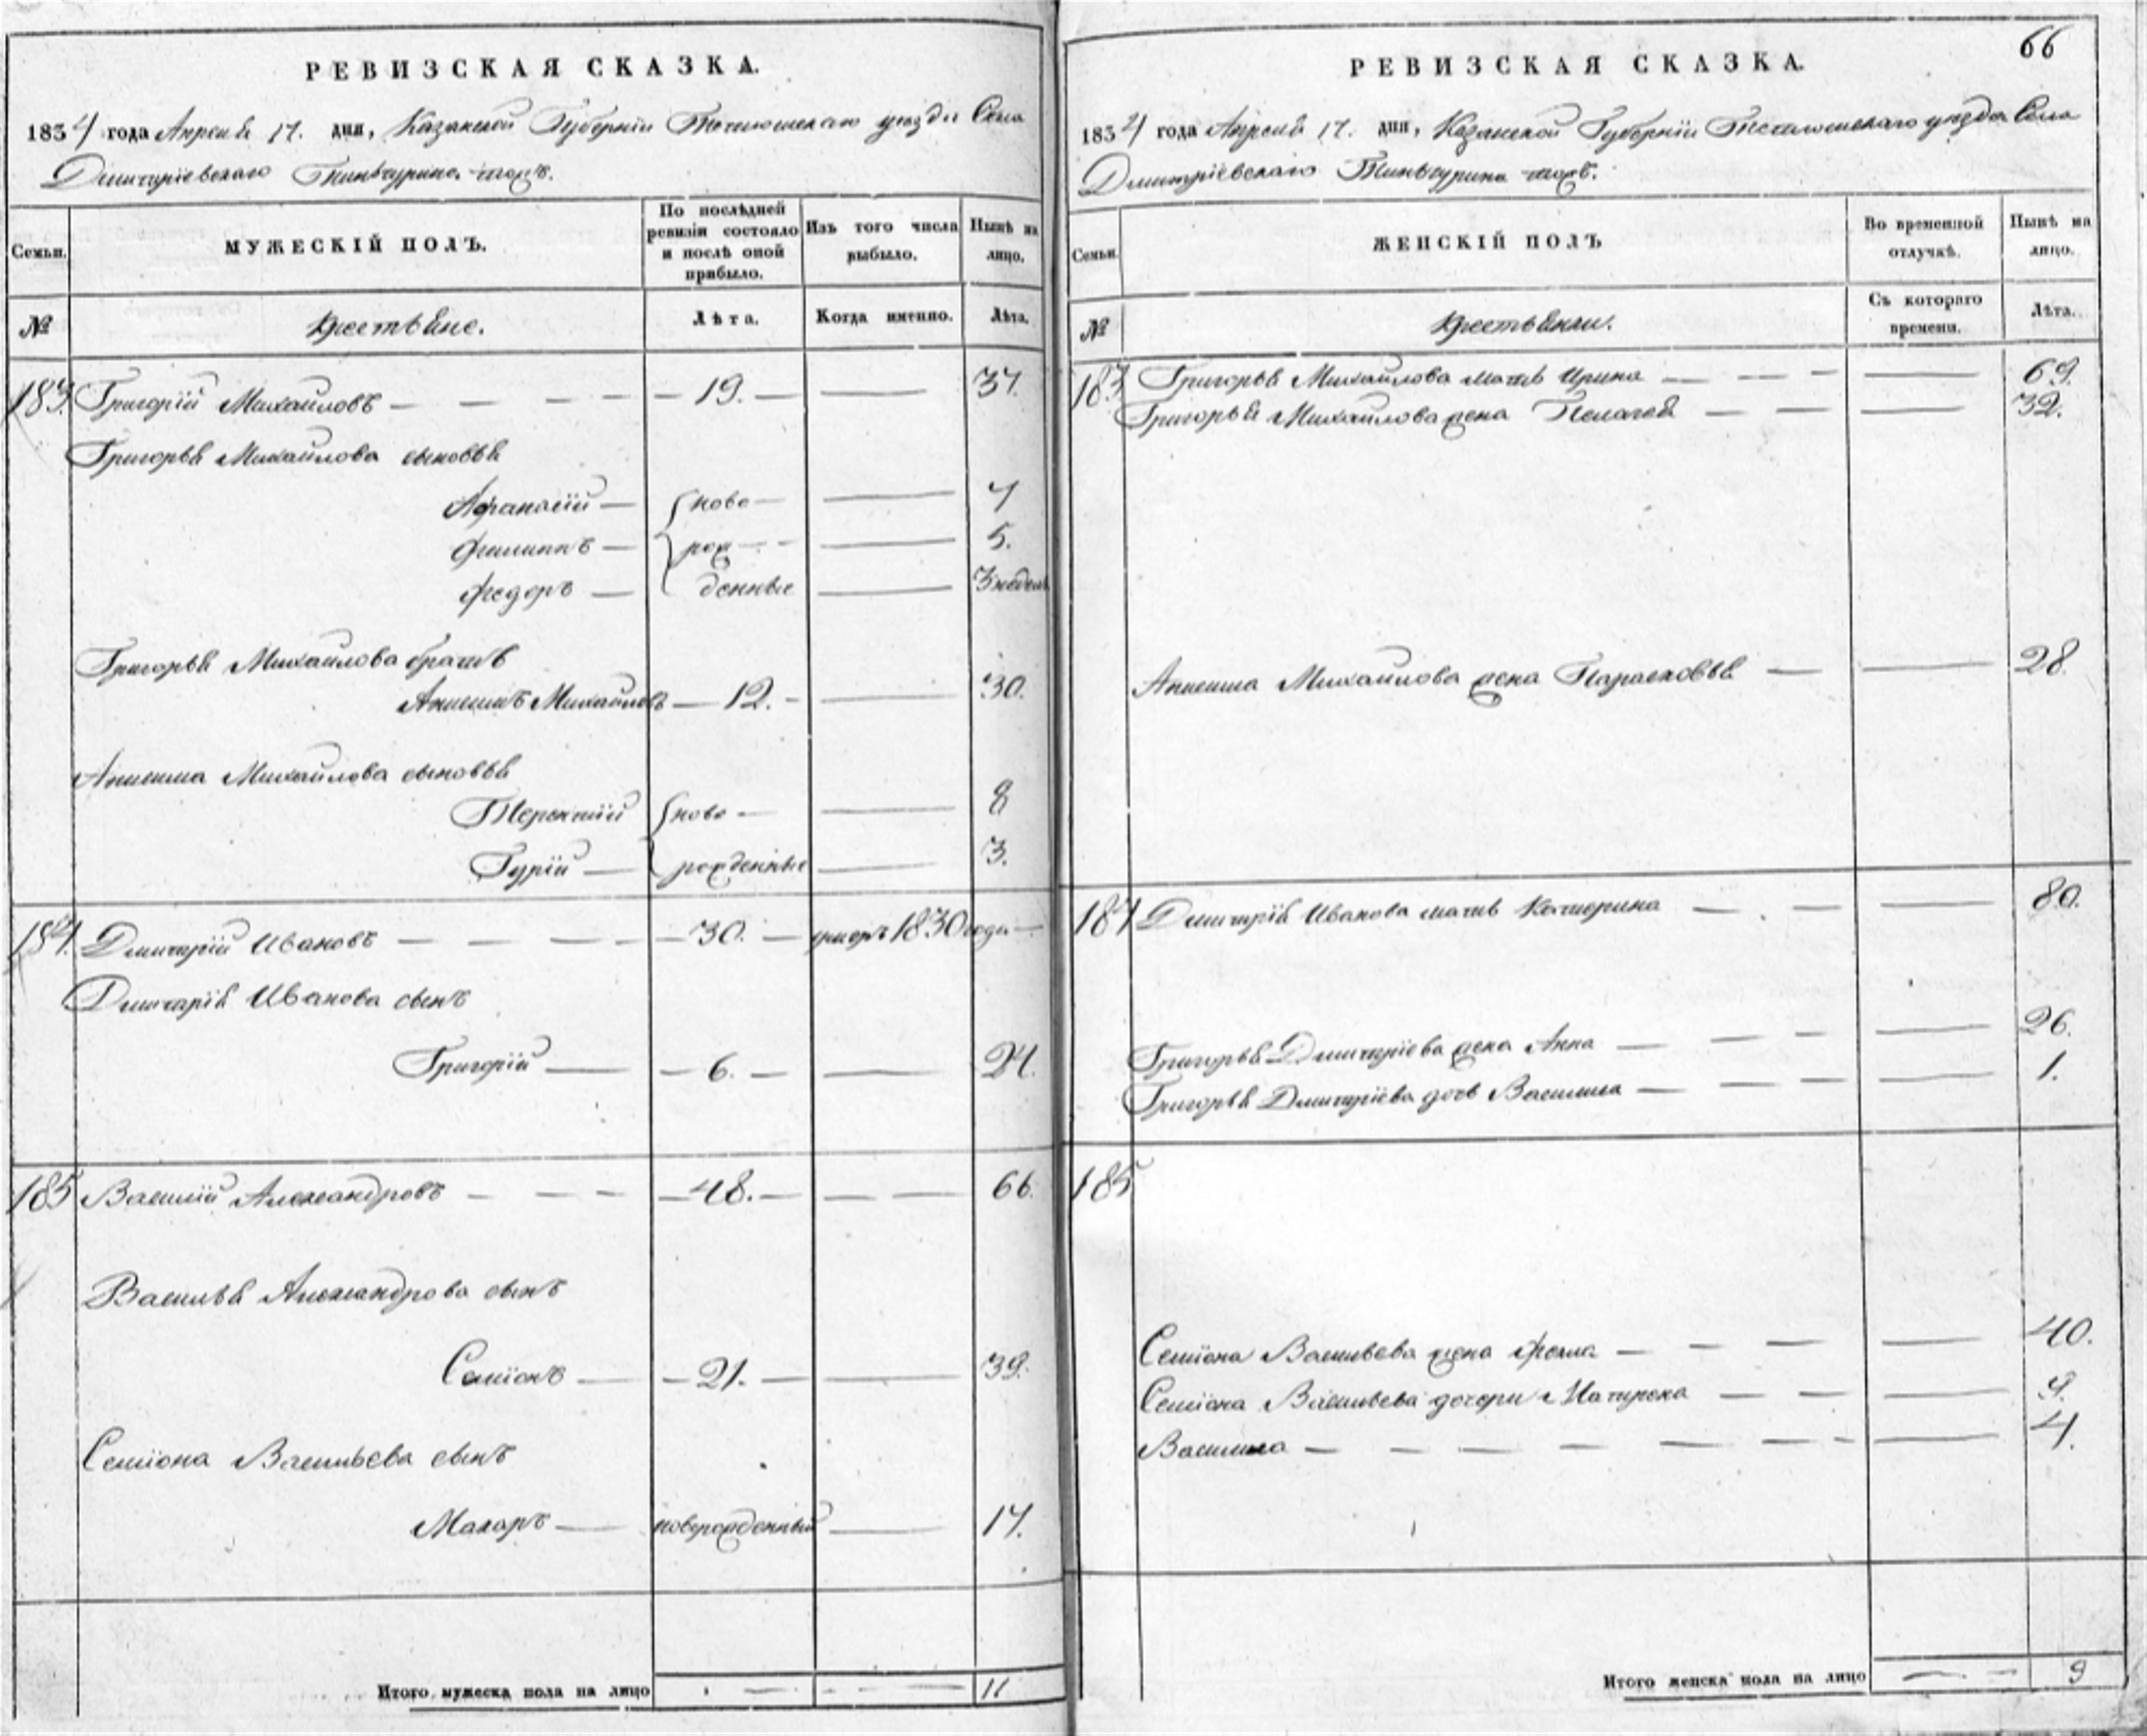 РЕВИЗСКАЯ СКАЗКА.
1834 года Апреля 17. дня, Казанской Губернiи Тетюшскаго уезда Села
Дмитрiевскаго Тиньчурино тожъ.
Семьи.
МУЖЕСКIЙ ПОЛЪ.
По послѣдней ревизiи состояло и послѣ оной прибыло.
Изъ того числа выбыло.
Нынѣ на лицо.
№
Крестьяне.
Лѣта.
Когда именно.
Лѣта.
183. Григорiй Михайловъ — 19. — 37.
Григорья Михайлова сыновья
Афанасiй — ново — 7
Филиппъ — рож — 5.
Федоръ — денные — 3 недель
Григорья Михайлова братъ
Анисимъ Михайловъ — 12. — 30.
Анисима Михайлова сыновья
Терентiй ново — 8
Гурiй — рожденные — 3.
184. Дмитрiй Ивановъ — 30. — умеръ 1830 года —
Дмитрiя Иванова сынъ
Григорiй — 6. — 24.
185 Василiй Александровъ — 48. — 66.
Василья Александрова сынъ
Семiонъ — 21. — 39.
Семiона Васильева сынъ
Макаръ — новорожденный — 17.
Итого мужеска пола на лицо — 11
66
РЕВИЗСКАЯ СКАЗКА.
1834 года Апреля 17. дня, Казанской Губернiи Тетюшскаго уезда Села
Дмитрiевскаго Тиньчурино тожъ.
Семьи.
ЖЕНСКIЙ ПОЛЪ
Во временной отлучкѣ.
Нынѣ на лицо.
№
Крестьянки.
Съ котораго времени.
Лѣта.
183 Григорья Михайлова мать Ирина — 69.
Григорья Михайлова жена Пелагея — 32.
Анисима Михайлова жена Парасковья — 28.
184 Дмитрiя Иванова мать Катерина — 80.
Григорья Дмитрiева жена Анна — 26.
Григорья Дмитрiева дочь Василиса — 1.
185
Семiона Васильева жена Фекла — 40.
Семiона Васильева дочери Матрена — 9.
Василиса — 4.
Итого женска пола на лицо — 9